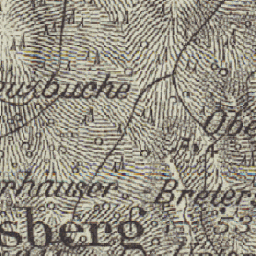 nuzbuche
Obe
rhauser
Breters
sberg
53